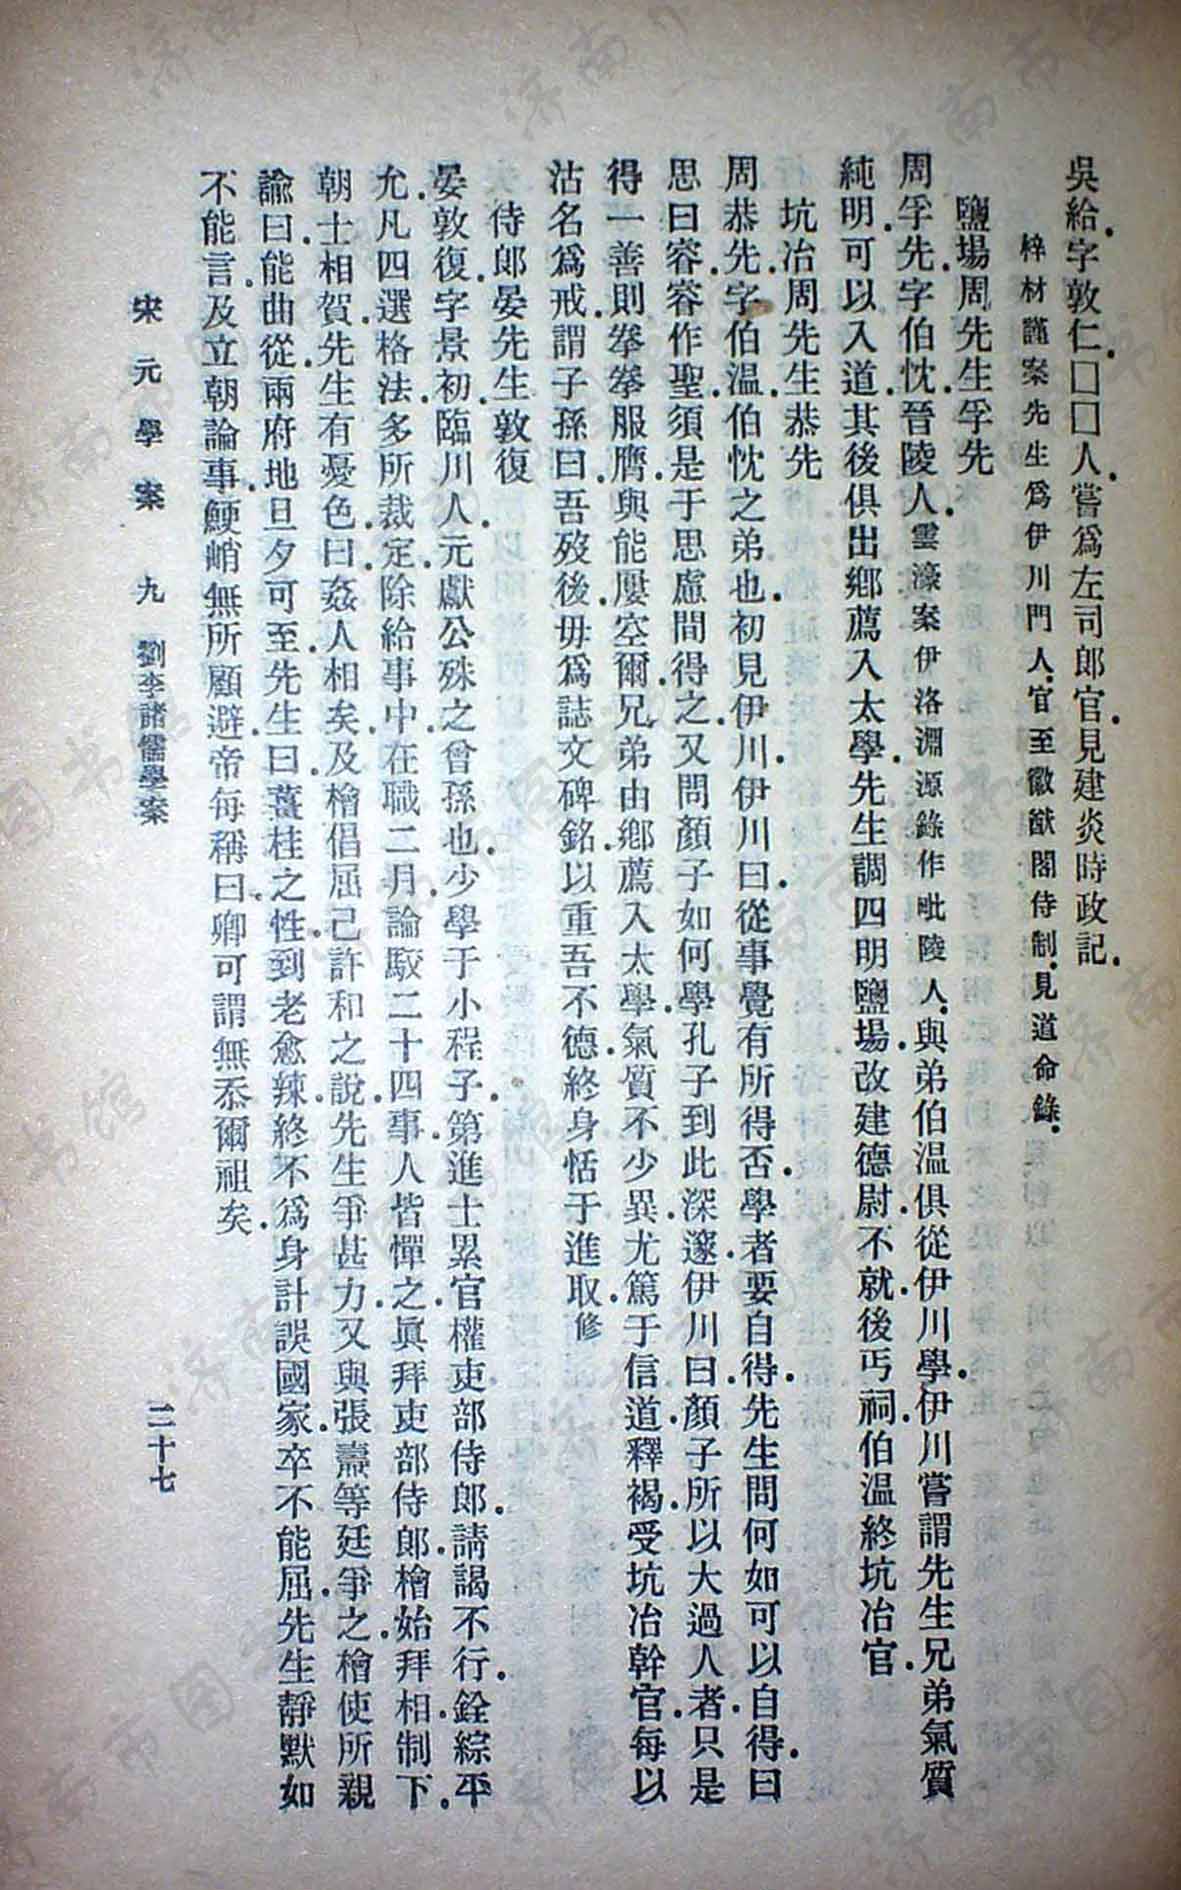 吳給字敦仁.□□人.嘗爲左司郎官.見建炎時政記.
梓材謹案先生爲伊川門人.官至徽猷閣侍制.見道命錄.
鹽場周先生孚先
周孚先.字伯忱.晉陵人.雲濠案伊洛淵源錄作毗陵人.與弟伯溫俱從伊川學.伊川嘗謂先生兄弟氣質
純明.可以入道.其後俱出鄉薦入太學.先生調四明鹽場.改建德尉.不就.後丐祠.伯溫終坑冶官.
坑冶周先生恭先
周恭先.字伯溫.伯忱之弟也.初見伊川.伊川曰.從事覺有所得否.學者要自得.先生問何如可以自得.曰
思曰睿.睿作聖.須是于思慮間得之.又問顏子如何學孔子到此深邃.伊川曰.顏子所以大過人者.只是
得一善則拳拳服膺.與能屢空爾.兄弟由鄉薦入太學.氣質不少異.尤篤于信道.釋褐.受坑冶幹官.每以
沽名爲戒.謂子孫曰.吾歿後.毋爲誌文碑銘.以重吾不德.終身恬于進取.修
侍郎晏先生敦復
晏敦復.字景初.臨川人.元獻公殊之曾孫也.少學于小程子.第進士.累官權吏部侍郎.請謁不行.銓綜平
允.凡四選格法.多所裁定.除給事中.在職二月.論駁二十四事.人皆憚之.眞拜吏部侍郎.檜始拜相.制下.
朝士相賀.先生有憂色.曰.姦人相矣.及檜倡屈己許和之說.先生爭甚力.又與張燾等廷爭之.檜使所親
諭曰.能曲從.兩府地旦夕可至.先生曰.薑桂之性.到老愈辣.終不爲身計誤國家.卒不能屈.先生靜默如
不能言.及立朝論事.鯁峭無所顧避.帝每稱曰.卿可謂無忝爾祖矣.
宋元學案 九 劉李諸儒學案 二十七
济南市图书馆